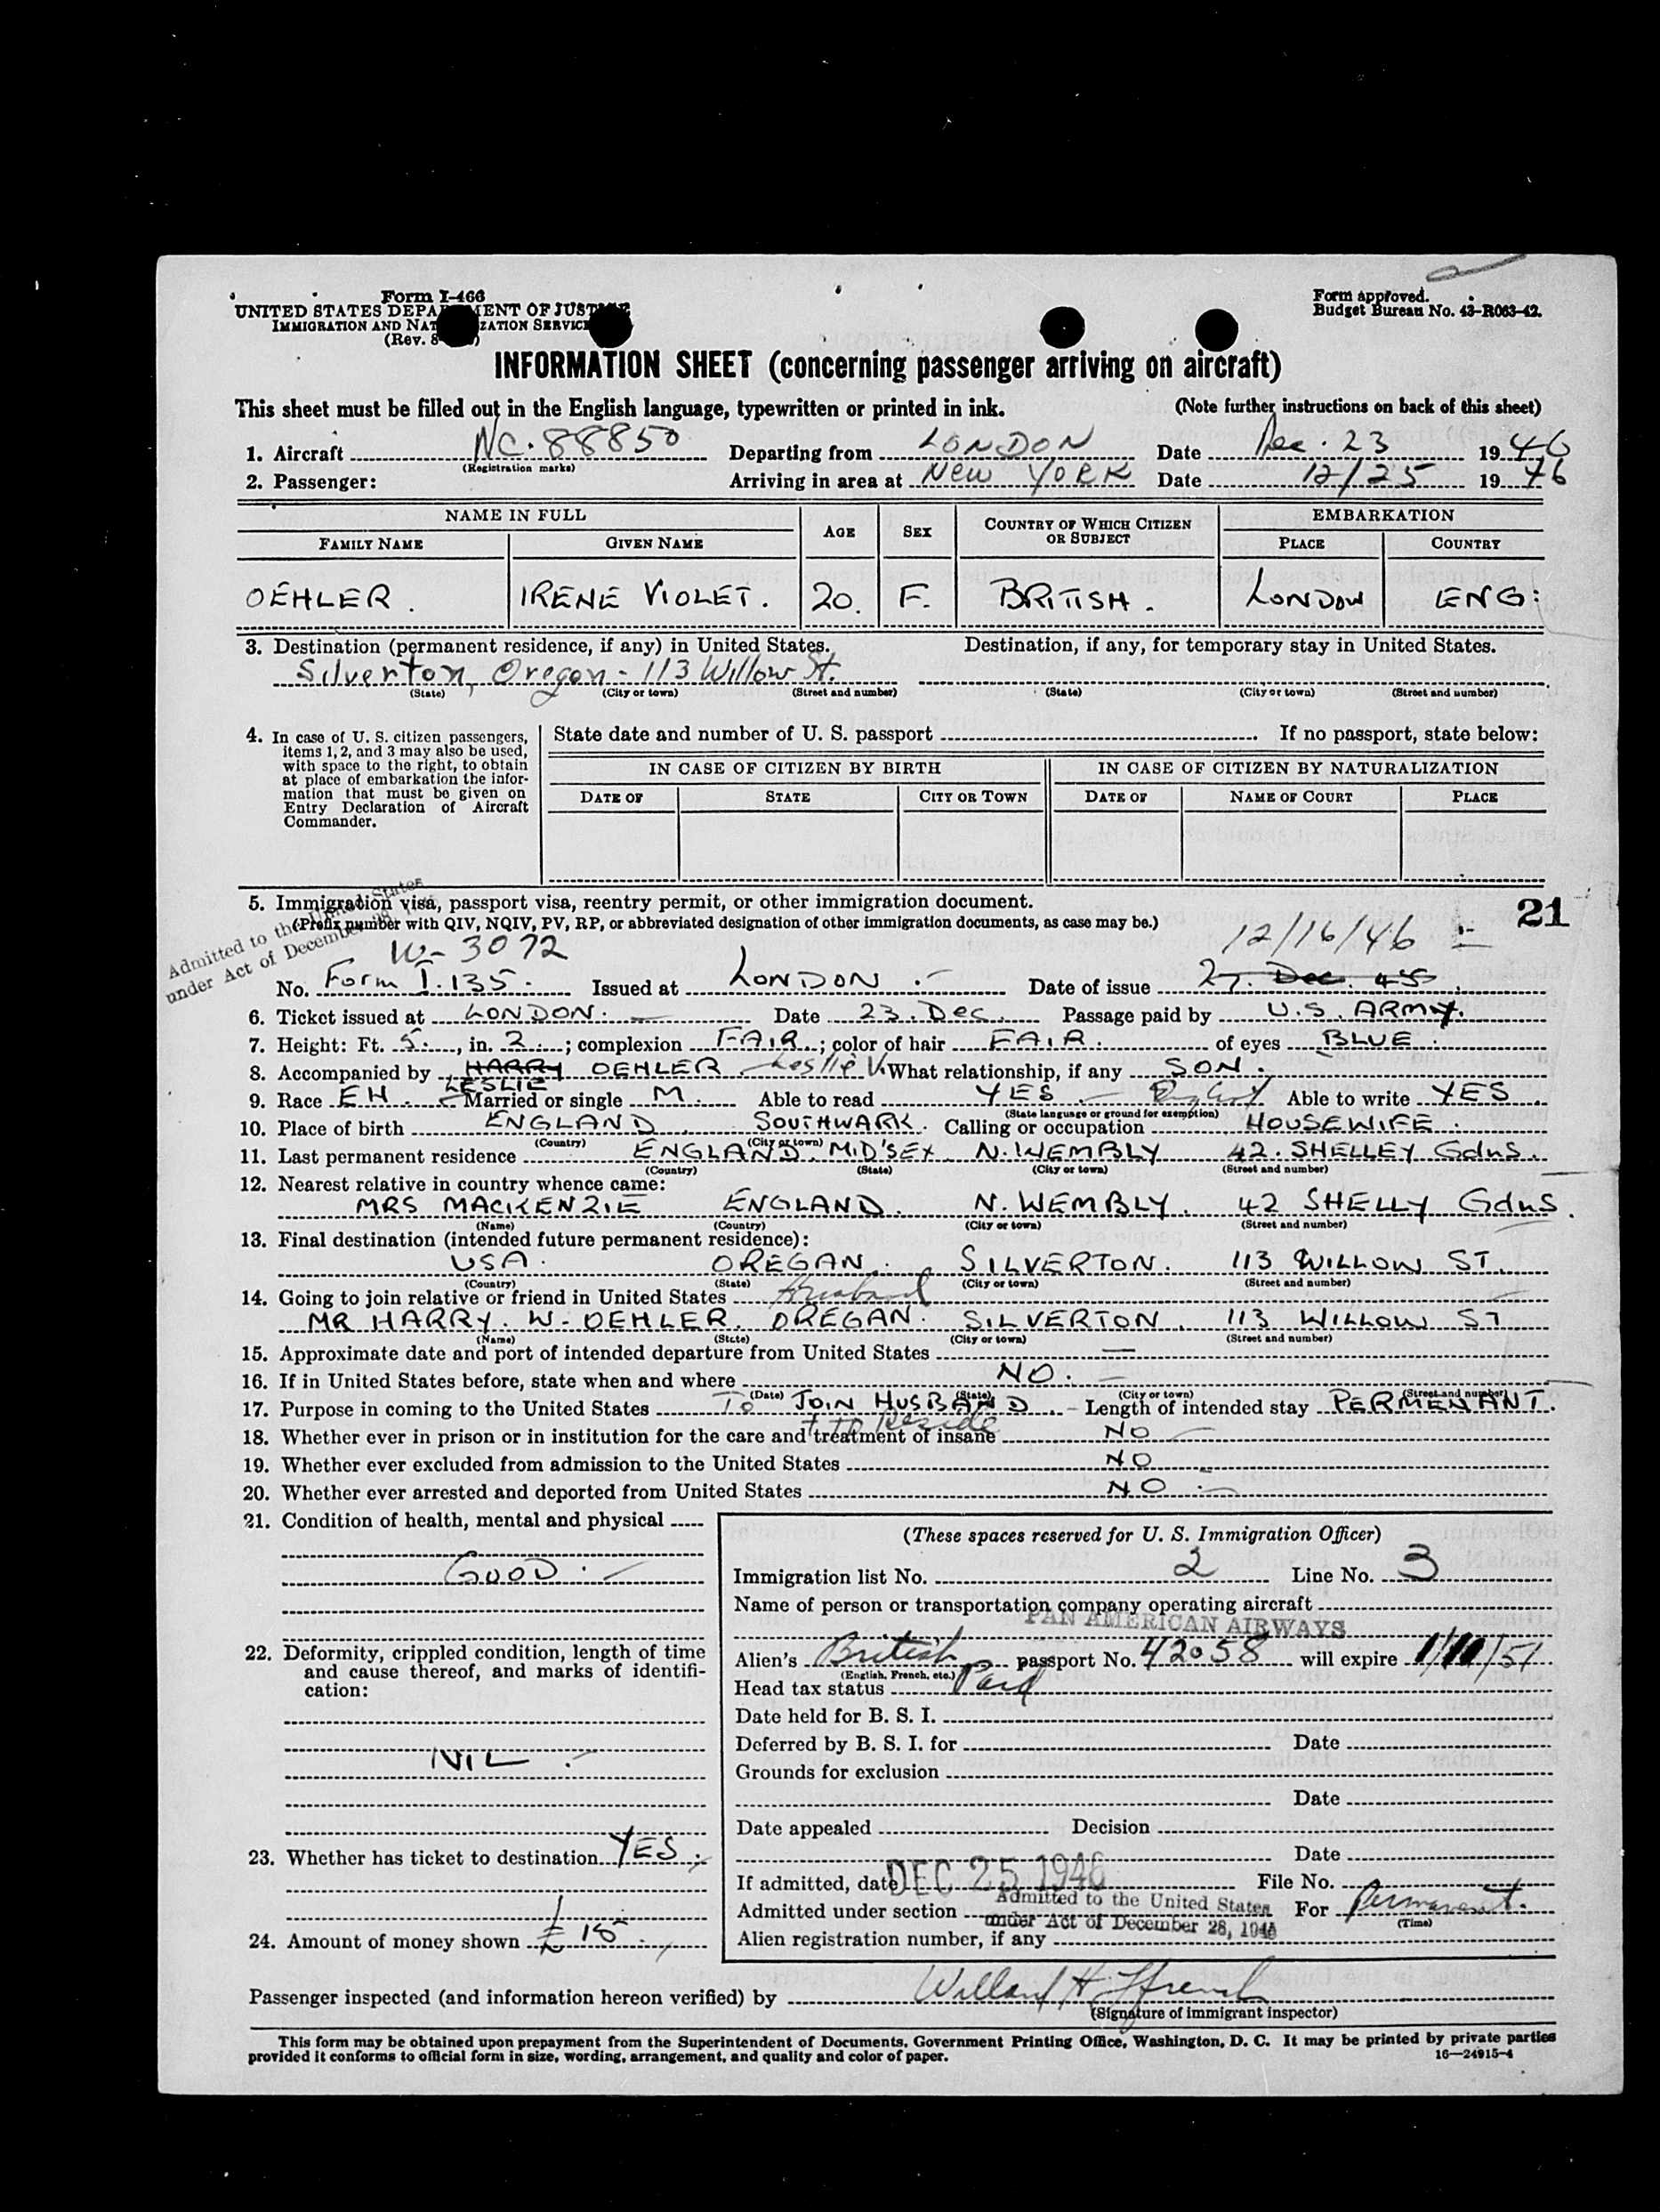 Form I-466
UNITED STATES DEPA MENT OF JUSTICE
IMMIGRATION AND NAT ZATION SERVICE
(Rev. 8 )
Form approved.
Budget Bureau No. 43-R063-42.
INFORMATION SHEET (concerning passenger arriving on aircraft)
This sheet must be filled out in the English language, typewritten or printed in ink. (Note further instructions on back of this sheet)
1. Aircraft NC. 88850 Departing from LONDON Date Dec. 23 1946
(Registration marks)
2. Passenger: Arriving in area at New YORK Date 12/25 1946
NAME IN FULL AGE SEX COUNTRY OF WHICH CITIZEN OR SUBJECT EMBARKATION
FAMILY NAME GIVEN NAME PLACE COUNTRY
OEHLER. IRENE VIOLET. 20. F. BRITISH. LONDON ENG:
3. Destination (permanent residence, if any) in United States. Destination, if any, for temporary stay in United States.
Silverton, Oregon - 113 Willow St.
(State) (City or town) (Street and number) (State) (City or town) (Street and number)
4. In case of U. S. citizen passengers,
items 1, 2, and 3 may also be used,
with space to the right, to obtain
at place of embarkation the infor-
mation that must be given on
Entry Declaration of Aircraft
Commander.
State date and number of U. S. passport If no passport, state below:
IN CASE OF CITIZEN BY BIRTH IN CASE OF CITIZEN BY NATURALIZATION
DATE OF STATE CITY OR TOWN DATE OF NAME OF COURT PLACE
5. Immigration visa, passport visa, reentry permit, or other immigration document.
(Prefix number with QIV, NQIV, PV, RP, or abbreviated designation of other immigration documents, as case may be.)
21
Admitted to the United States
under Act of December 28,
W-3072 12/16/46
No. Form I.135. Issued at LONDON. Date of issue 27. Dec. 45
6. Ticket issued at LONDON. Date 23. Dec. Passage paid by U.S. ARMY.
7. Height: Ft. 5., in. 2.; complexion FAIR.; color of hair FAIR. of eyes BLUE.
8. Accompanied by HARRY OEHLER Leslie V. What relationship, if any SON.
LESLIE
9. Race EN. Married or single M. Able to read YES English Able to write YES.
(State language or ground for exemption)
10. Place of birth ENGLAND SOUTHWARK. Calling or occupation HOUSEWIFE.
(Country) (City or town)
11. Last permanent residence ENGLAND. MID'SEX N. WEMBLY 42. SHELLEY Gdns.
(Country) (State) (City or town) (Street and number)
12. Nearest relative in country whence came:
MRS MACKENZIE ENGLAND. N. WEMBLY. 42 SHELLY Gdns.
(Name) (Country) (City or town) (Street and number)
13. Final destination (intended future permanent residence):
USA. OREGAN. SILVERTON. 113 WILLOW ST.
(Country) (State) (City or town) (Street and number)
14. Going to join relative or friend in United States Husband
MR HARRY. W. OEHLER. OREGAN. SILVERTON. 113 WILLOW ST
(Name) (State) (City or town) (Street and number)
15. Approximate date and port of intended departure from United States —
16. If in United States before, state when and where NO.
(Date) (State) (City or town) (Street and number)
17. Purpose in coming to the United States To JOIN HUSBAND. Length of intended stay PERMENANT.
+ to Reside
18. Whether ever in prison or in institution for the care and treatment of insane NO
19. Whether ever excluded from admission to the United States NO
20. Whether ever arrested and deported from United States NO
21. Condition of health, mental and physical
GOOD.
22. Deformity, crippled condition, length of time
and cause thereof, and marks of identifi-
cation:
NIL.
23. Whether has ticket to destination YES
24. Amount of money shown £ 15
(These spaces reserved for U. S. Immigration Officer)
Immigration list No. 2 Line No. 3
Name of person or transportation company operating aircraft
PAN AMERICAN AIRWAYS
Alien's British passport No. 42058 will expire /51
(English, French, etc.)
Head tax status Paid
Date held for B. S. I.
Deferred by B. S. I. for Date
Grounds for exclusion
Date
Date appealed Decision
Date
If admitted, date DEC 25 1946 File No.
Admitted under section Admitted to the United States For Permanent.
under Act of December 28, 1945 (Time)
Alien registration number, if any
Passenger inspected (and information hereon verified) by Willard H. Ffrench
(Signature of immigrant inspector)
This form may be obtained upon prepayment from the Superintendent of Documents, Government Printing Office, Washington, D. C. It may be printed by private parties
provided it conforms to official form in size, wording, arrangement, and quality and color of paper. 16—24915-4